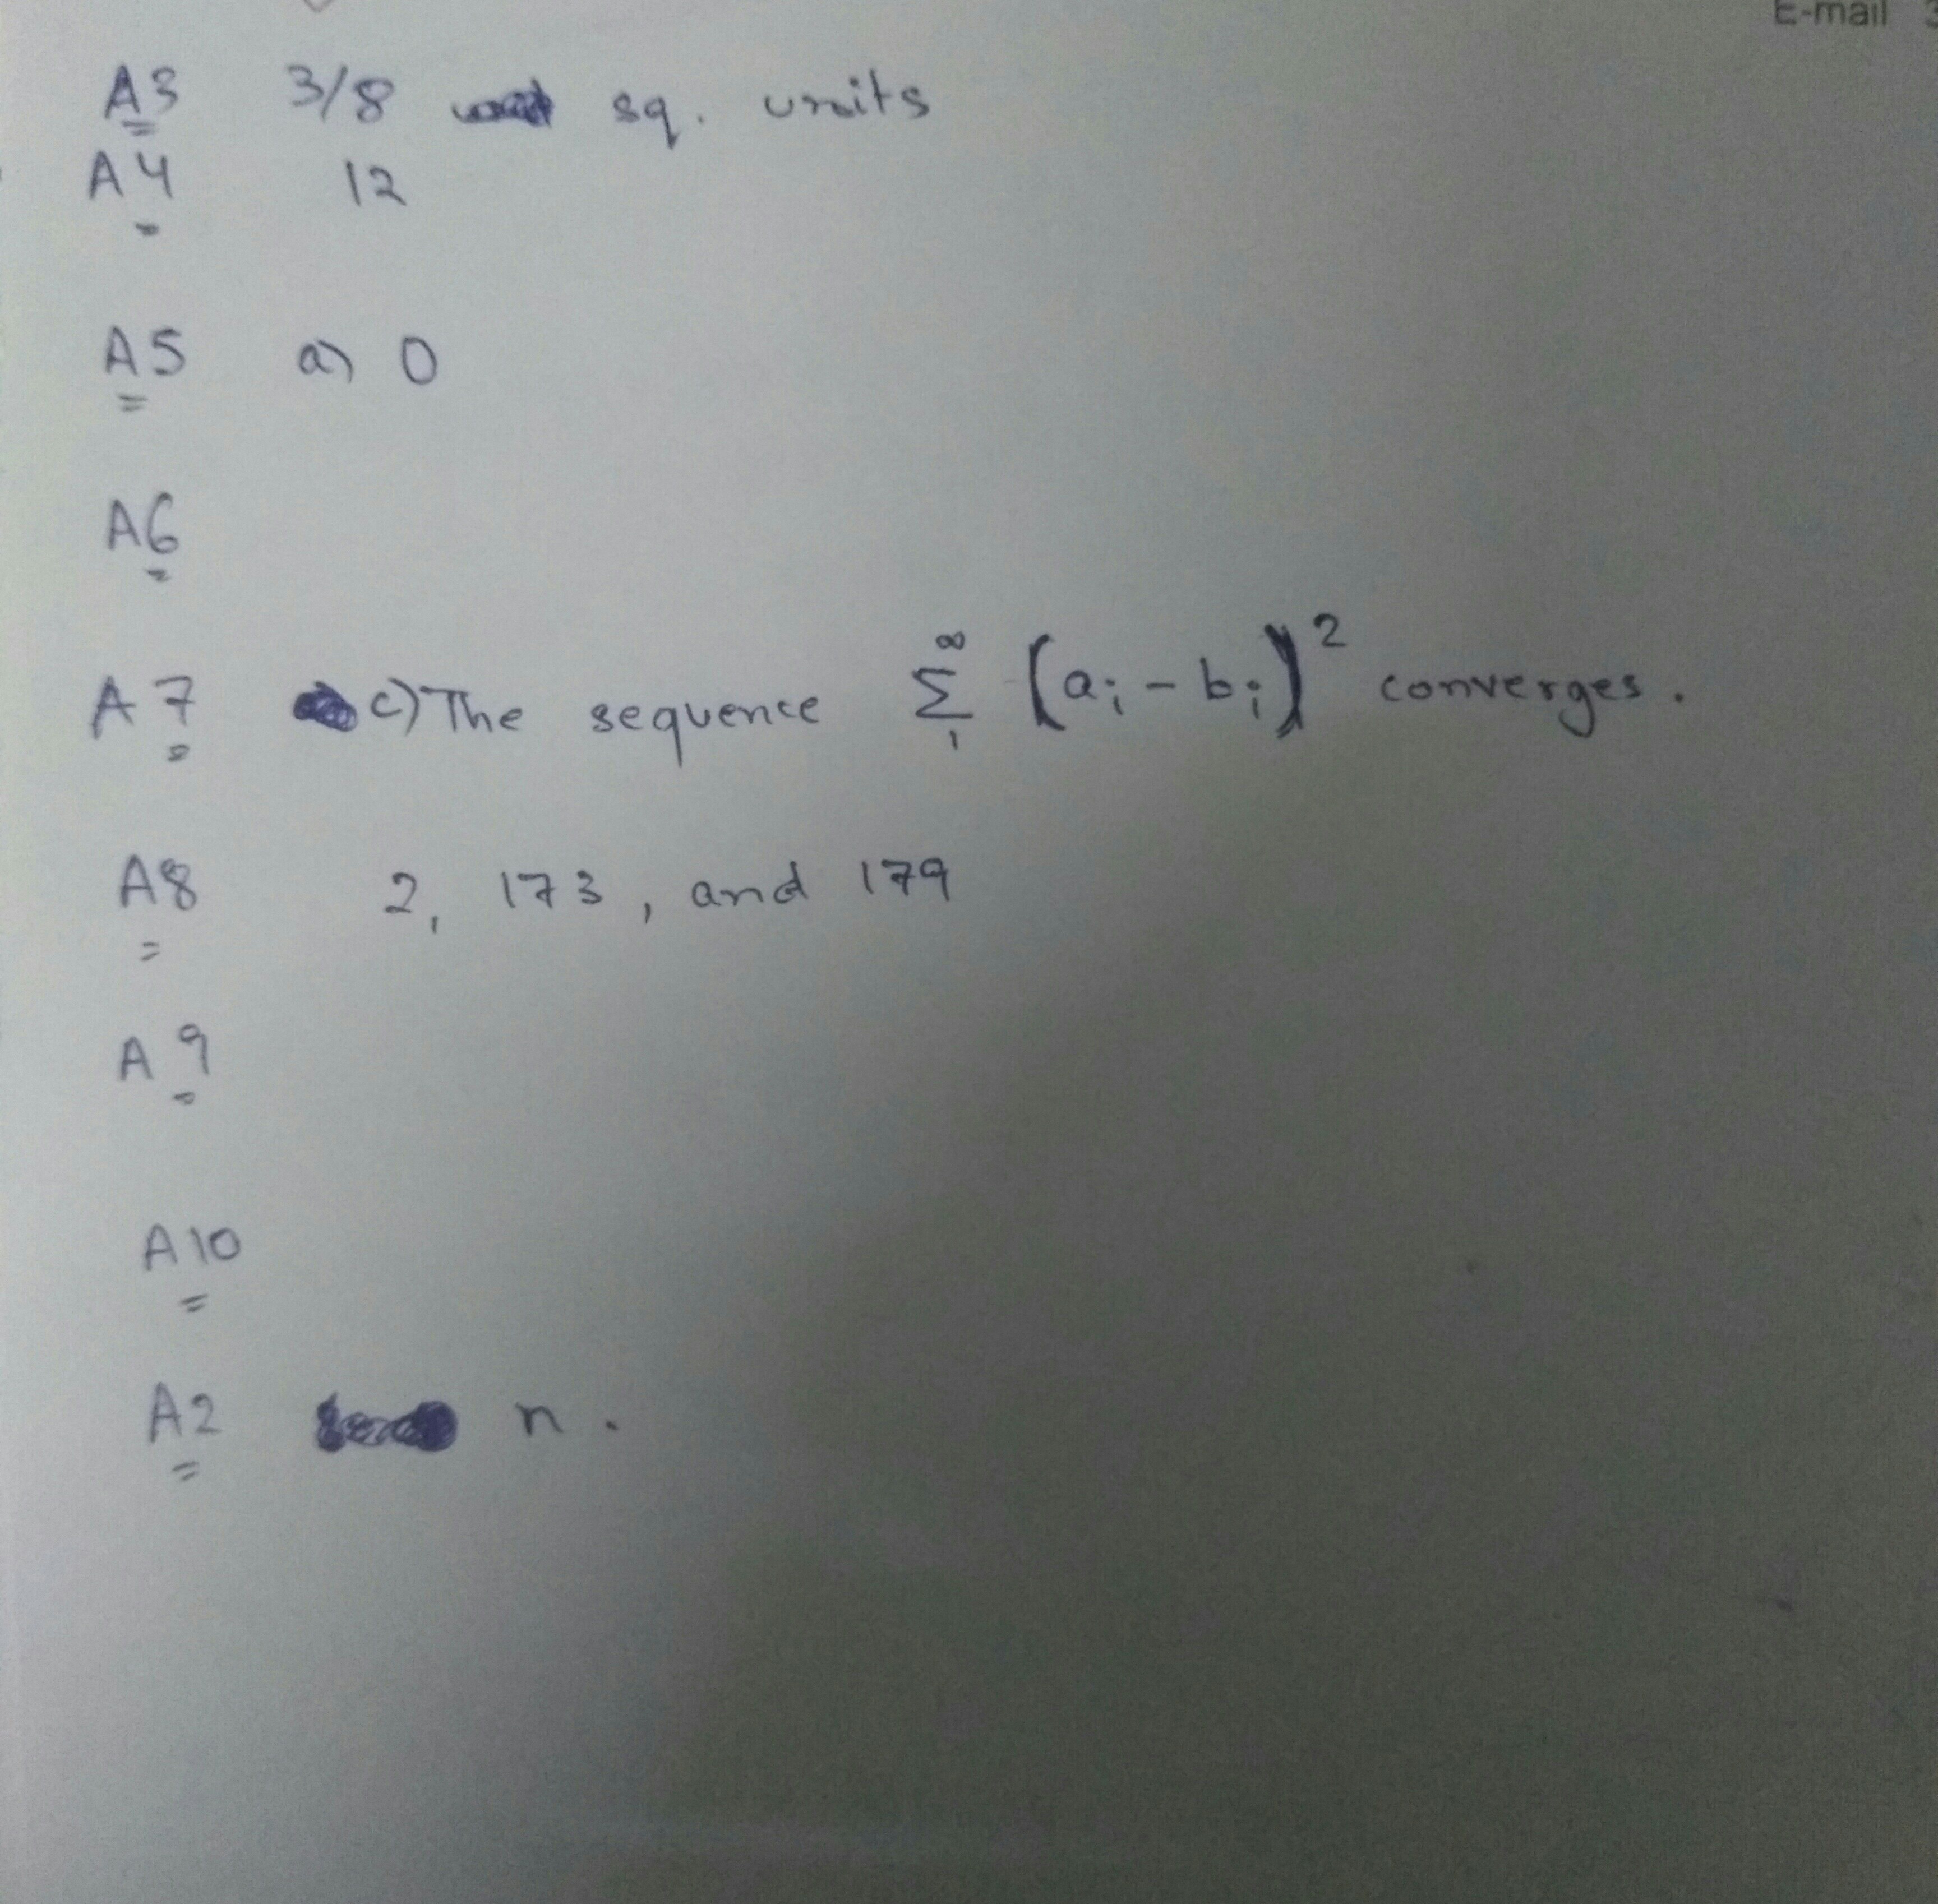 E-mail
A3 3/8 sq. units
A4 12
A5 a) 0
A6
∞
A7 c) The sequence Σ (aᵢ - bᵢ)² converges.
1
A8 2, 173, and 179
A9
A10
A2 n.